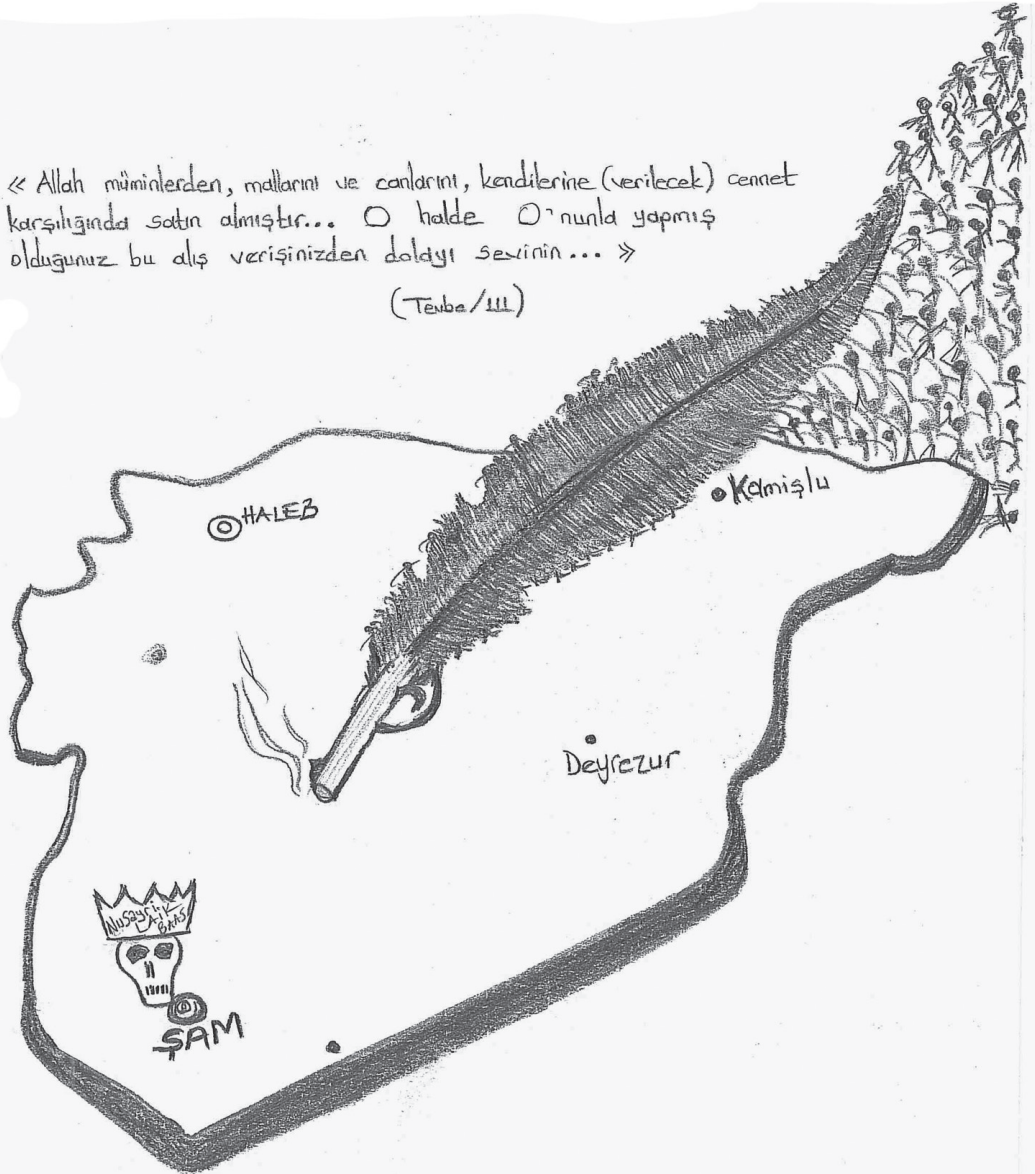 « Allah müminlerden, mallarını ve canlarını, kendilerine (verilecek) cennet
karşılığında satın almıştır... O halde O'nunla yapmış
olduğunuz bu alış verişinizden dolayı sevinin... »
(Tevbe/111)
HALEB
Kamişlu
Deyrezur
Nusayri
LAİK
BAAS
ŞAM